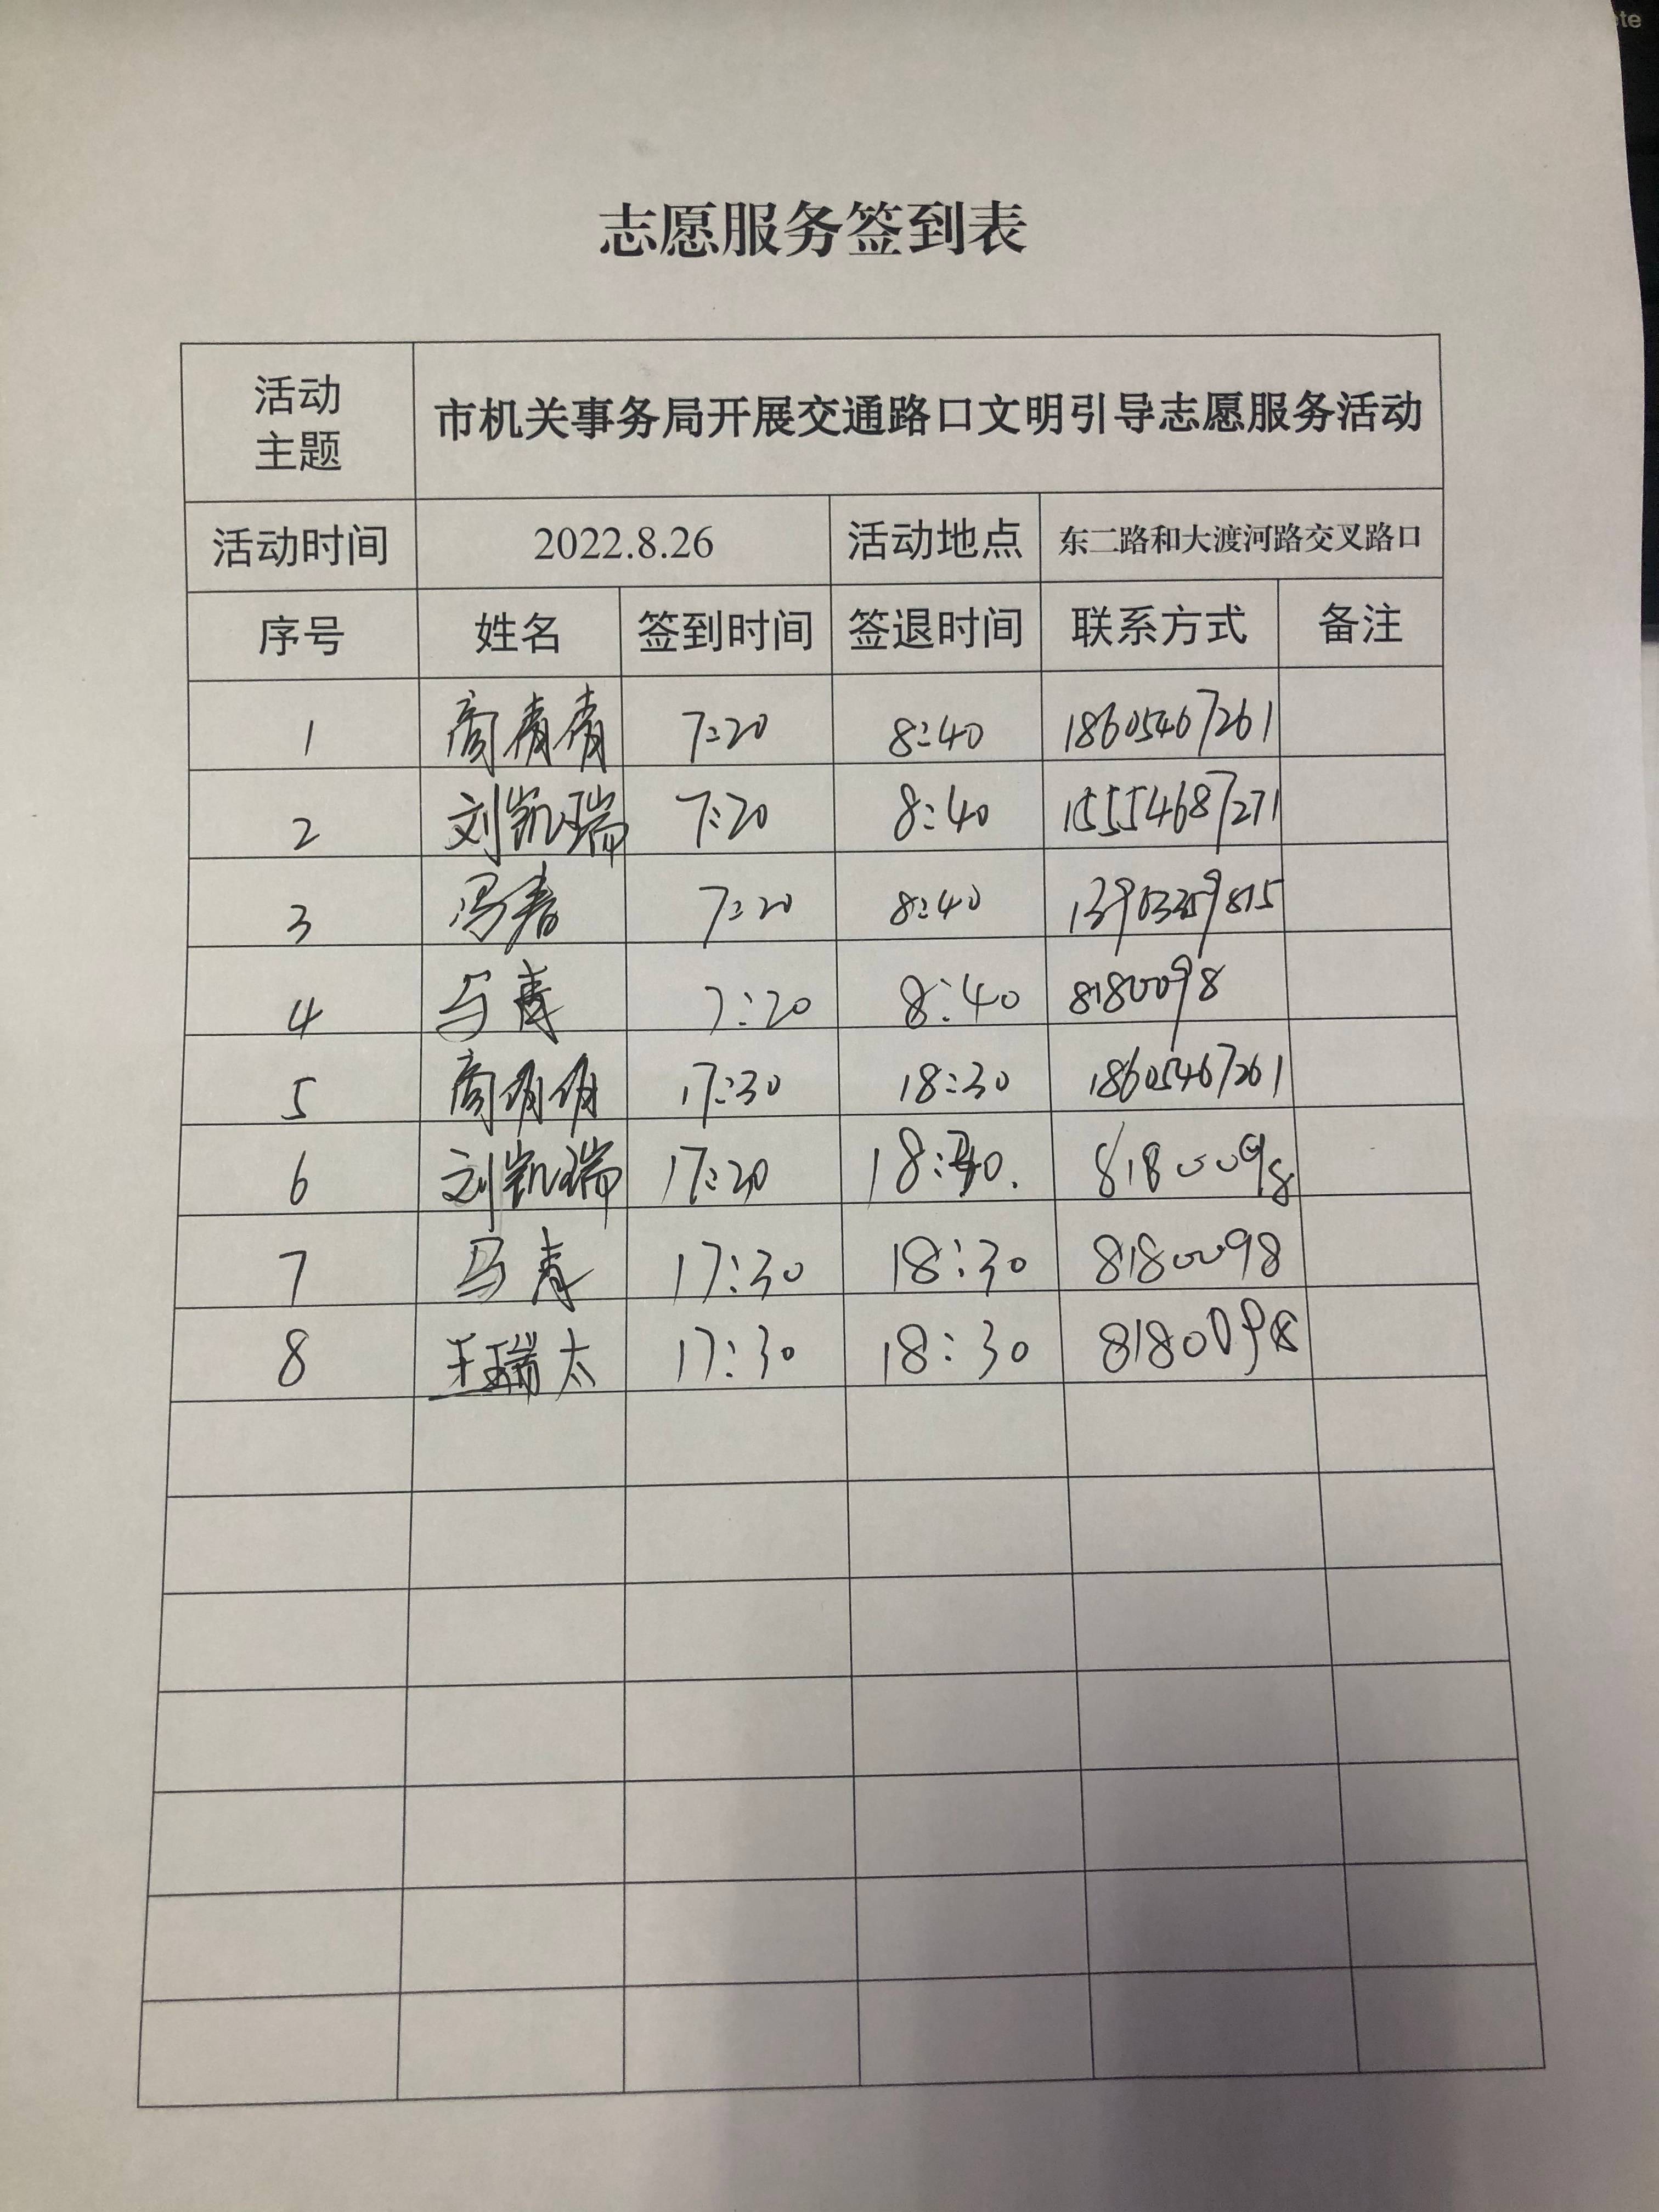 志愿服务签到表
活动主题 市机关事务局开展交通路口文明引导志愿服务活动
活动时间 2022.8.26 活动地点 东二路和大渡河路交叉路口
序号 姓名 签到时间 签退时间 联系方式 备注
1 商青青 7:20 8:40 18605467261
2 刘凯瑞 7:20 8:40 15554687271
3 冯春 7:20 8:40
4 马青 7:20 8:40 8180098
5 商 17:30 18:30 18605467261
6 刘凯瑞 8180098
7 马青 17:30 18:30 8180098
8 王瑞太 17:30 18:30 8180098